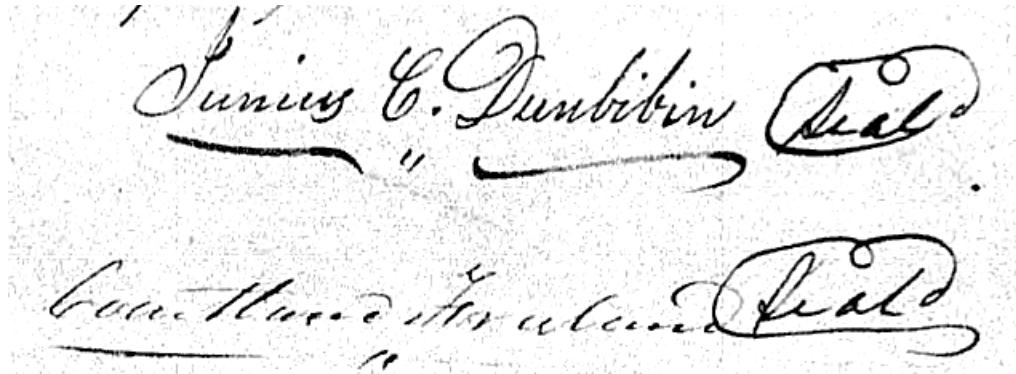 Junius C. Dunbibin Seal
Courtland Seal